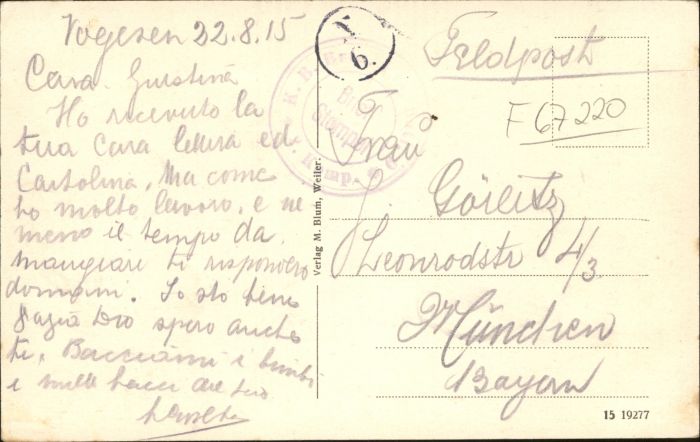 Vogesen 22.8.15
Cara Giustina
Ho ricevuto la
tua cara lettera ed
Cartolina, Ma come
ho molto lavoro, e ne
meno il tempo da
mangiare ti risponderò
domani. Io sto bene
grazia Dio spero anche
te, Bacciami i bimbi
e mille bacci dal tuo
Verlag M. Blum, Weiler.
K. B.
6.
Feldpost
F 67220
Frau
J. Görlitz
Leonrodstr 4/3
München
Bayern
15 19277